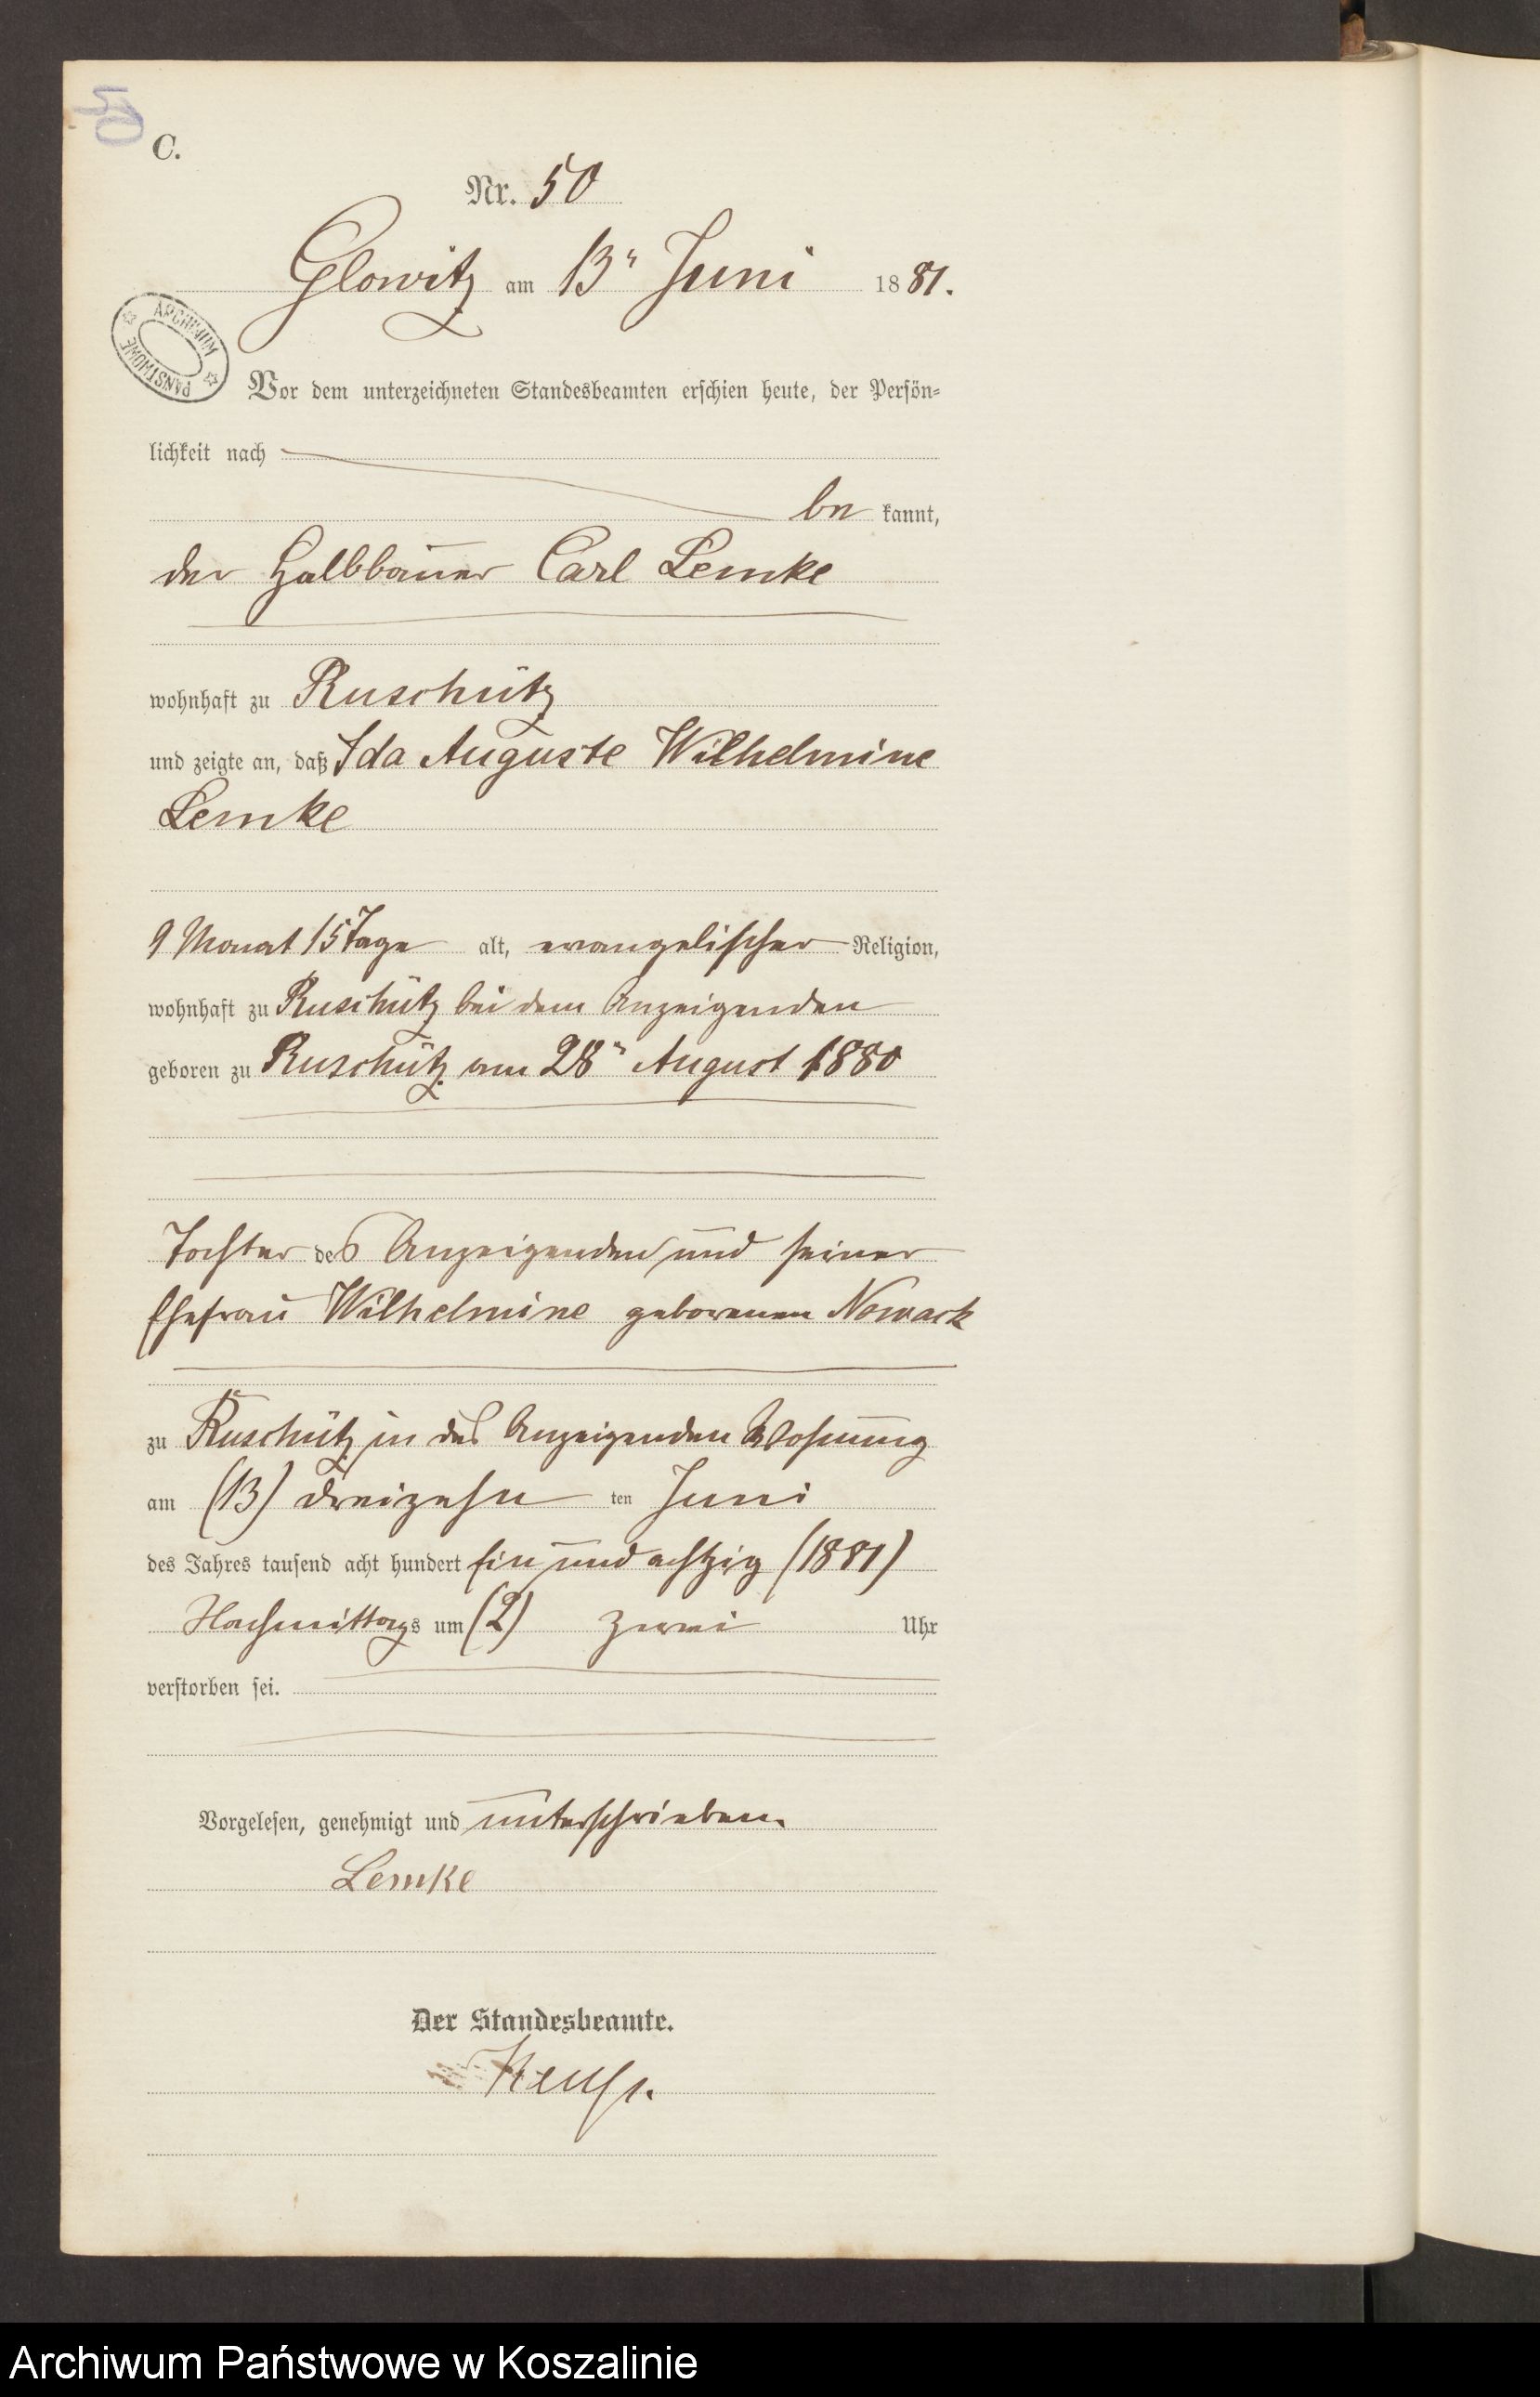 50
C.
Nr. 50
Glowitz am 13n Juni 1881.
ARCHIWUM PAŃSTWOWE
Vor dem unterzeichneten Standesbeamten erschien heute, der Persön-
lichkeit nach
be kannt,
der Halbbauer Carl Lemke
wohnhaft zu Ruschütz
und zeigte an, daß Ida Auguste Wilhelmine
Lemke
9 Monat 15 Tage alt, evangelischer Religion,
wohnhaft zu Ruschütz bei dem Anzeigenden
geboren zu Ruschütz am 28n August 1880
Tochter des Anzeigenden und seiner
Ehefrau Wilhelmine geborenen Nowack
zu Ruschütz in des Anzeigenden Wohnung
am (13) dreizehn ten Juni
des Jahres tausend acht hundert ein und achtzig (1881)
Nachmittags um (2) zwei Uhr
verstorben sei.
Vorgelesen, genehmigt und unterschrieben.
Lemke
Der Standesbeamte.
Archiwum Państwowe w Koszalinie